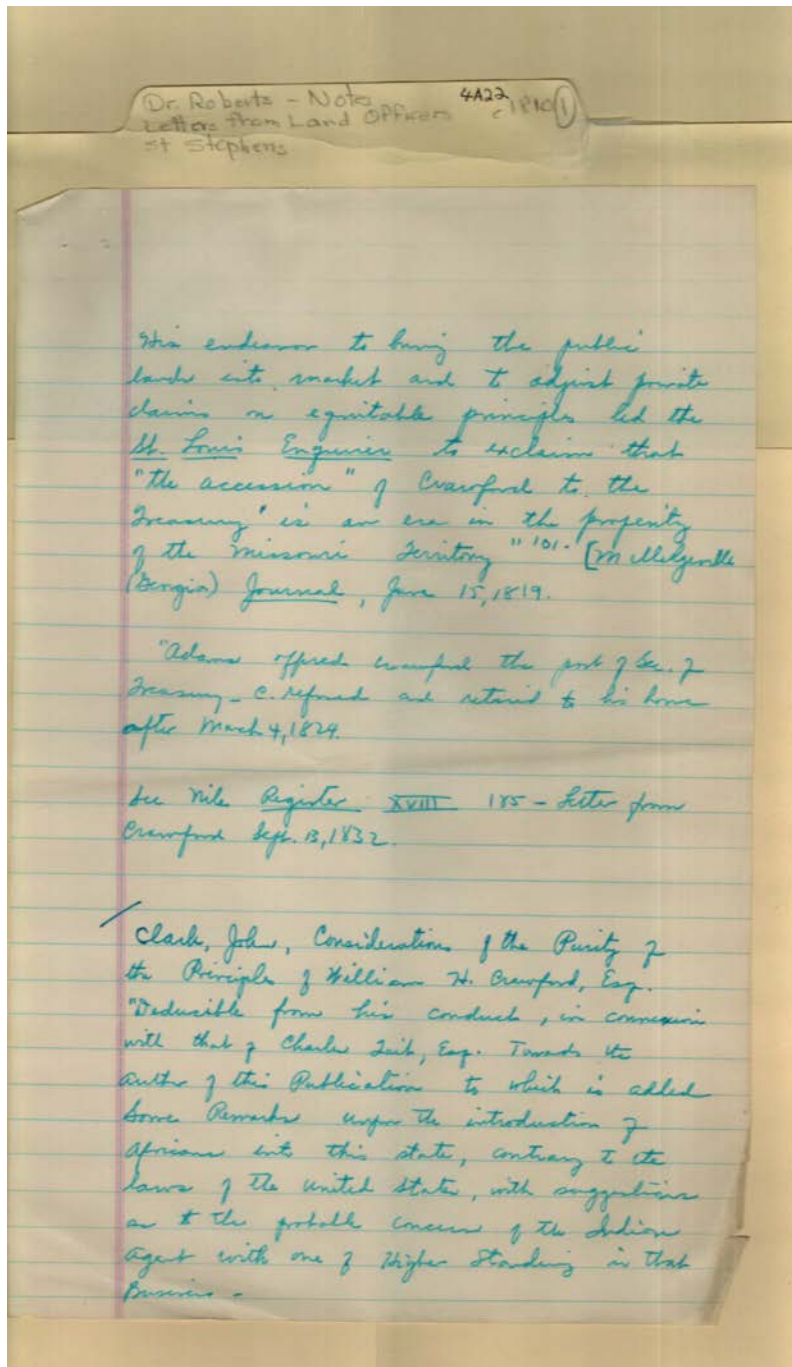 Dr. Roberts - Notes 4A22
Letters from Land Officers c 1810 1
St Stephens
His endeavor to bring the public
lands into market and to adjust private
claims on equitable principles led the
St. Louis Enquirer to exclaim that
"the accession" of Crawford to the
Treasury 'is an era in the
of the Missouri Territory" 101. [Milledgeville
(Georgia) Journal, June 15, 1819.
"Adams offered Crawford the post of Sec. of
Treasury - C. refused and retired to his home
after March 4, 1829.
See Nile Register XVIII 185 - Letter from
Crawford Sept. 13, 1832.
Clark, John, Considerations of the Purity of
the Principles of William H. Crawford, Esq.
"Deducible from his conduct, in connexion
with that of Charles Tait, Esq. Towards the
author of this Publication to which is added
Some Remarks upon the introduction of
Africans into this state, contrary to the
laws of the United States, with suggestions
as to the probable concern of the Indian
Agent with one of Higher Standing in that
Business -